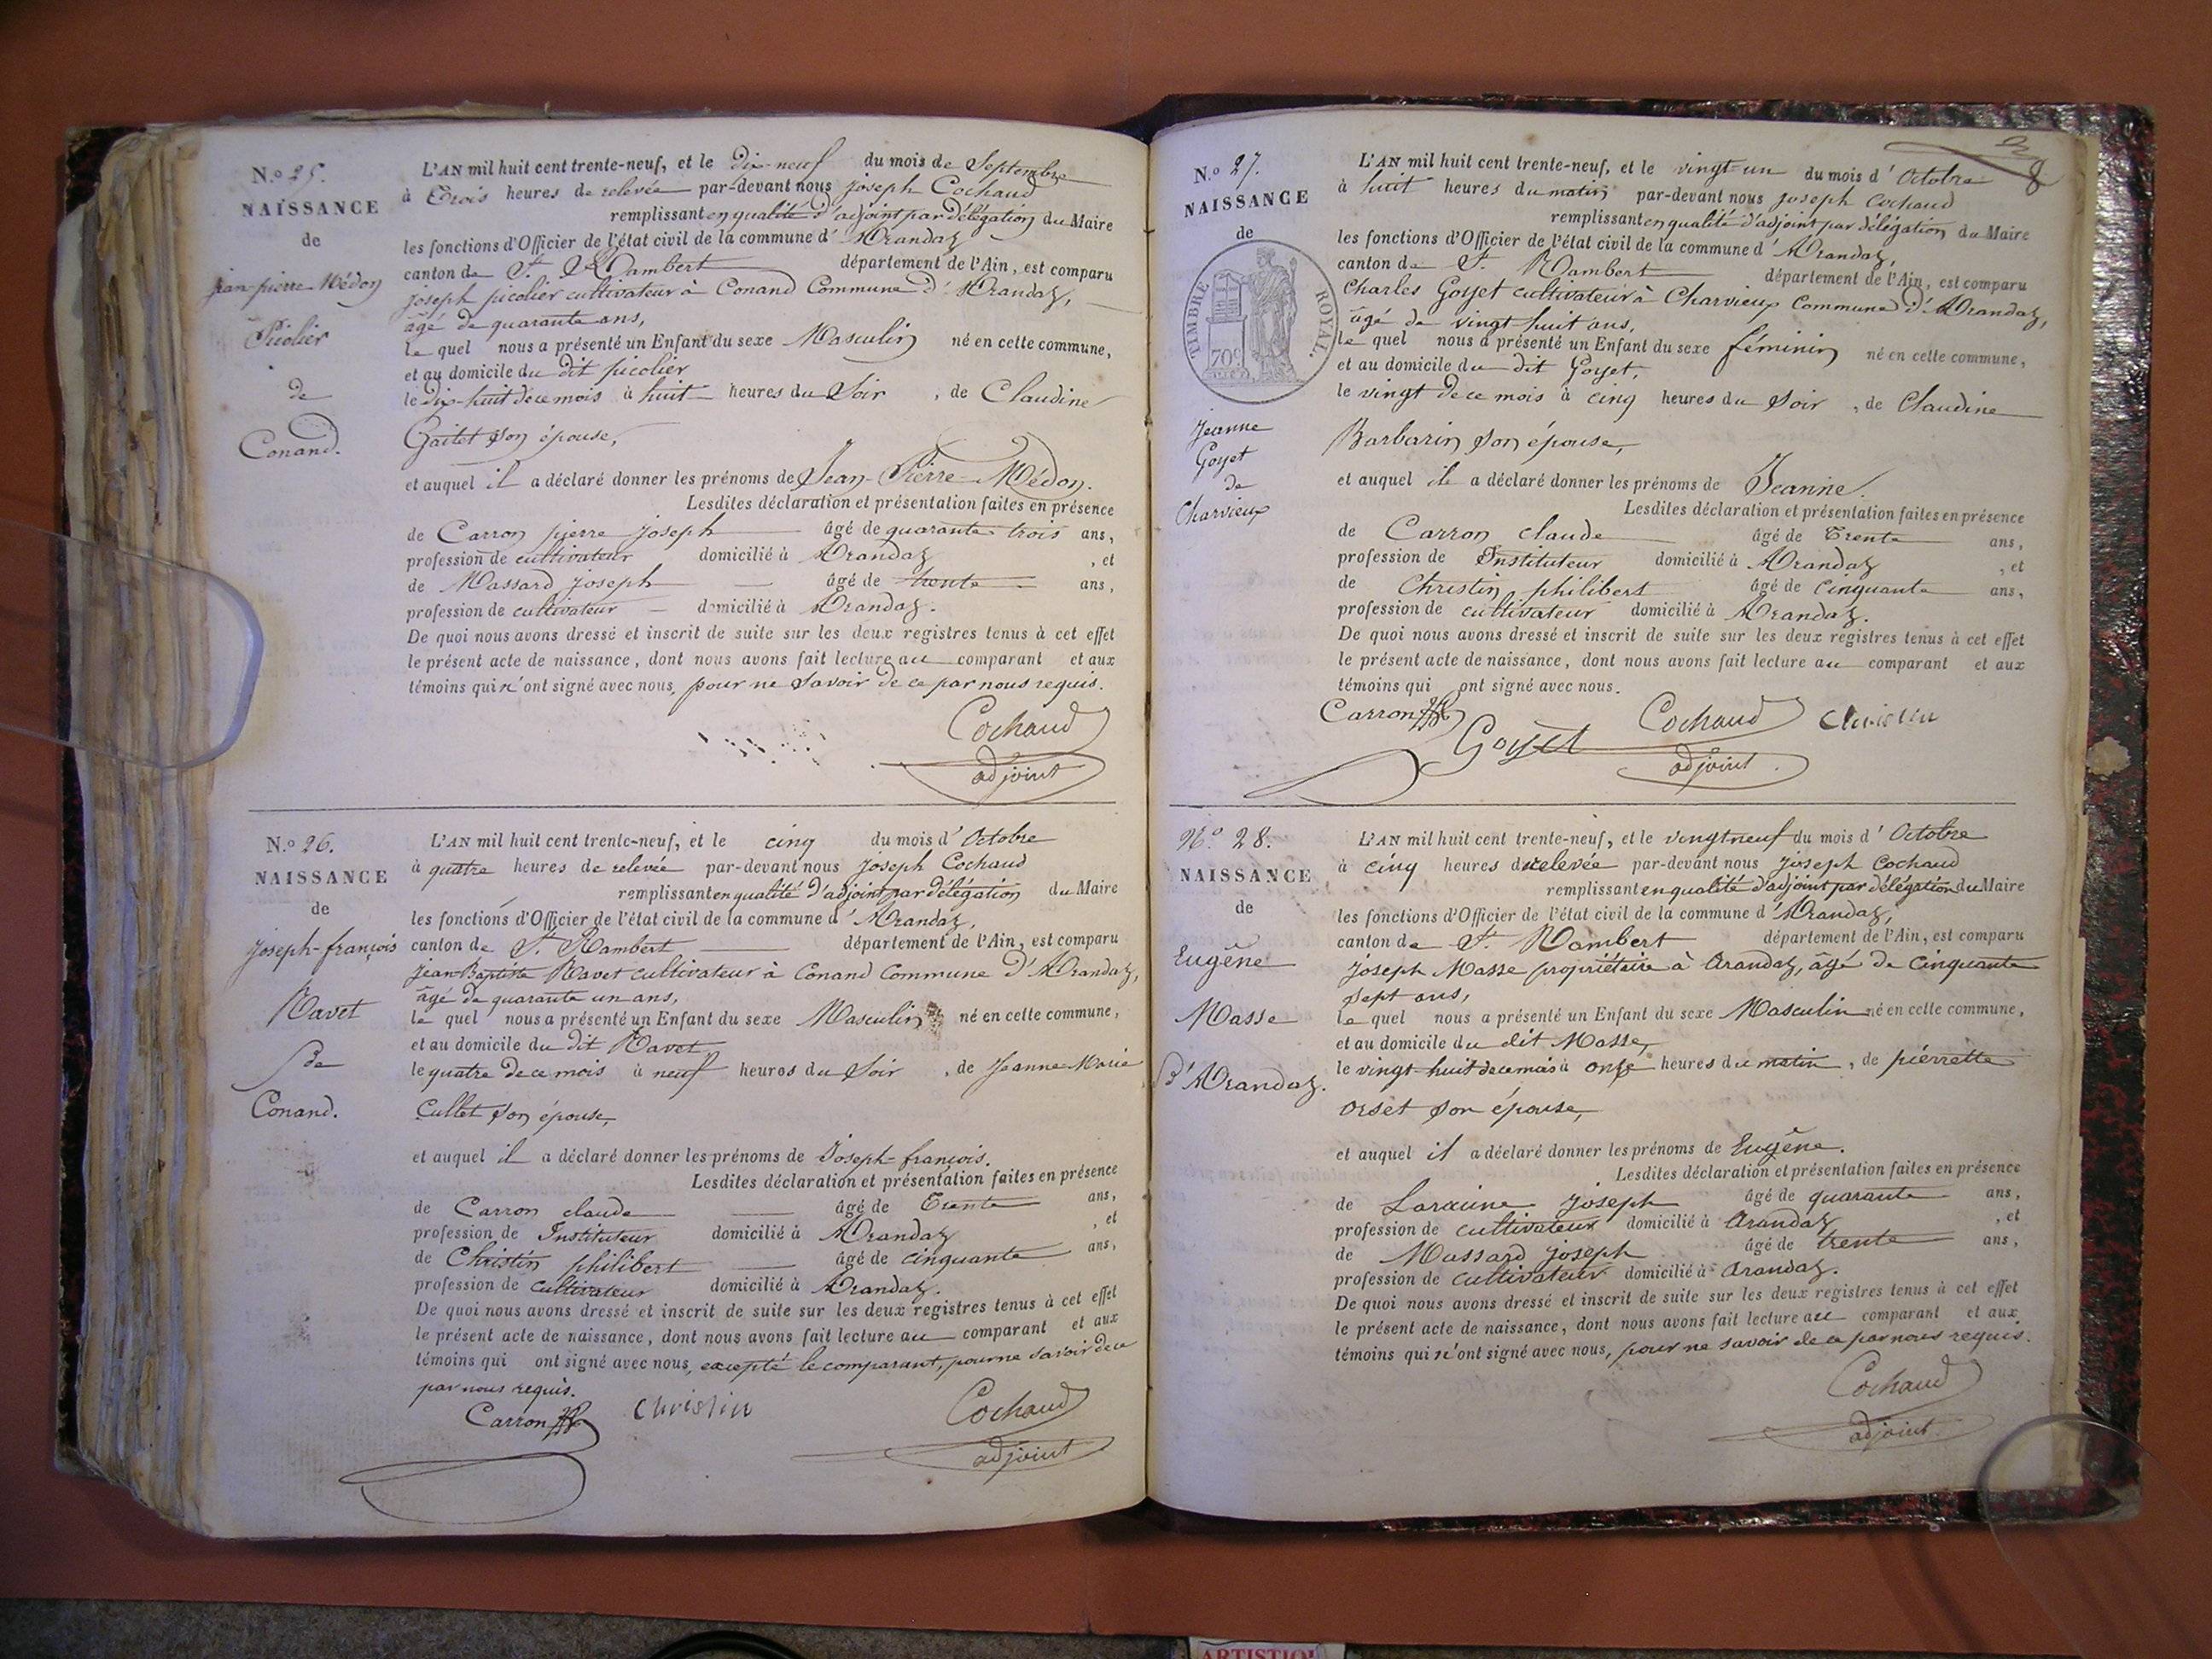 N.º 25.
NAISSANCE
de
jean-pierre Médon
Picolier
de
Conand.
L'AN mil huit cent trente-neuf, et le dix-neuf du mois de Septembre
à Trois heures de relevée par-devant nous joseph Cochaud
remplissant en qualité d'adjoint par délégation du Maire
les fonctions d'Officier de l'état civil de la commune d' Arandaz
canton de St. Rambert département de l'Ain, est comparu
joseph picolier cultivateur à Conand Commune d' Arandaz,
âgé de quarante ans,
le quel nous a présenté un Enfant du sexe Masculin né en cette commune,
et au domicile du dit picolier
le dix-huit de ce mois à huit heures du Soir, de Claudine
Gaitet son épouse,
et auquel il a déclaré donner les prénoms de Jean-Pierre-Médon.
Lesdites déclaration et présentation faites en présence
de Carron pierre joseph âgé de quarante trois ans,
profession de cultivateur domicilié à Arandaz, et
de Massard joseph âgé de trente ans,
profession de cultivateur domicilié à Arandaz.
De quoi nous avons dressé et inscrit de suite sur les deux registres tenus à cet effet
le présent acte de naissance, dont nous avons fait lecture au comparant et aux
témoins qui n'ont signé avec nous, pour ne savoir de ce par nous requis.
Cochaud
adjoint
N.º 26.
NAISSANCE
de
joseph-françois
Ravet
de
Conand.
L'AN mil huit cent trente-neuf, et le cinq du mois d' Octobre
à quatre heures de relevée par-devant nous joseph Cochaud
remplissant en qualité d'adjoint par délégation du Maire
les fonctions d'Officier de l'état civil de la commune d' Arandaz,
canton de St. Rambert département de l'Ain, est comparu
jean-Baptiste Ravet cultivateur à Conand Commune d' Arandaz,
âgé de quarante un ans,
le quel nous a présenté un Enfant du sexe Masculin né en cette commune,
et au domicile du dit Ravet
le quatre de ce mois à neuf heures du Soir, de Jeanne-Marie
Cullet son épouse,
et auquel il a déclaré donner les prénoms de Joseph-françois.
Lesdites déclaration et présentation faites en présence
de Carron claude âgé de Trente ans,
profession de Instituteur domicilié à Arandaz, et
de Christin philibert âgé de cinquante ans,
profession de cultivateur domicilié à Arandaz.
De quoi nous avons dressé et inscrit de suite sur les deux registres tenus à cet effet
le présent acte de naissance, dont nous avons fait lecture au comparant et aux
témoins qui ont signé avec nous, excepté le comparant, pour ne savoir de ce
par nous requis.
Carron Christin Cochaud
adjoint
8
N.º 27.
NAISSANCE
de
TIMBRE ROYAL.
70c
Jeanne
Goyet
de
Charvieux
L'AN mil huit cent trente-neuf, et le vingt-un du mois d' Octobre
à huit heures du matin par-devant nous joseph Cochaud
remplissant en qualité d'adjoint par délégation du Maire
les fonctions d'Officier de l'état civil de la commune d' Arandaz,
canton de St. Rambert département de l'Ain, est comparu
Charles Goyet cultivateur à Charvieux Commune d' Arandaz,
âgé de vingt huit ans,
le quel nous a présenté un Enfant du sexe féminin né en cette commune,
et au domicile du dit Goyet,
le vingt de ce mois à cinq heures du Soir, de Claudine
Barbarin son épouse,
et auquel il a déclaré donner les prénoms de Jeanne.
Lesdites déclaration et présentation faites en présence
de Carron claude âgé de Trente ans,
profession de Instituteur domicilié à Arandaz, et
de Christin philibert âgé de cinquante ans,
profession de cultivateur domicilié à Arandaz.
De quoi nous avons dressé et inscrit de suite sur les deux registres tenus à cet effet
le présent acte de naissance, dont nous avons fait lecture au comparant et aux
témoins qui ont signé avec nous.
Carron Goyet Cochaud Christin
adjoint
N.º 28.
NAISSANCE
de
Eugêne
Masse
d'Arandaz.
L'AN mil huit cent trente-neuf, et le vingt neuf du mois d' Octobre
à cinq heures de relevée par-devant nous joseph Cochaud
remplissant en qualité d'adjoint par délégation du Maire
les fonctions d'Officier de l'état civil de la commune d' Arandaz,
canton de St. Rambert département de l'Ain, est comparu
joseph Masse propriétaire à Arandaz, âgé de cinquante
sept ans,
le quel nous a présenté un Enfant du sexe Masculin né en cette commune,
et au domicile du dit Masse,
le vingt-huit de ce mois à onze heures du matin, de pierrette
Orset son épouse,
et auquel il a déclaré donner les prénoms de Eugêne.
Lesdites déclaration et présentation faites en présence
de joseph âgé de quarante ans,
profession de cultivateur domicilié à Arandaz, et
de Massard joseph âgé de trente ans,
profession de cultivateur domicilié à Arandaz.
De quoi nous avons dressé et inscrit de suite sur les deux registres tenus à cet effet
le présent acte de naissance, dont nous avons fait lecture au comparant et aux
témoins qui n'ont signé avec nous, pour ne savoir de ce par nous requis.
Cochaud
adjoint